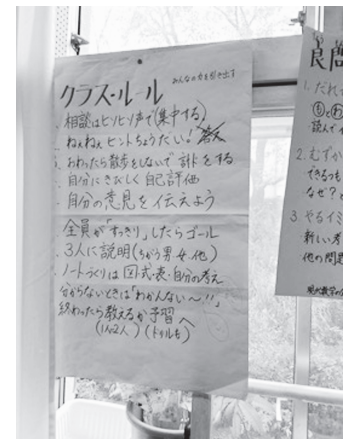 みんなの力を引き出す
クラス・ルール
相談はヒソヒソ声で(集中する)
ねぇねぇ ヒントちょうだい!
おわったら散歩をしないで 計ドをする
自分にきびしく 自己評価
自分の意見を伝えよう
全員が「すっきり」したらゴール
3人に説明(ちがう男女他)
ノートづくりは 図・式・表・自分の考え
分からないときは「わかんない〜!!」
終わったら教えるか予習へ
(1人2人) (ドリルも)
1. だれで
2. むずか
できるっ
なぜ?と
3. やるイミ
新しい考
他の問題